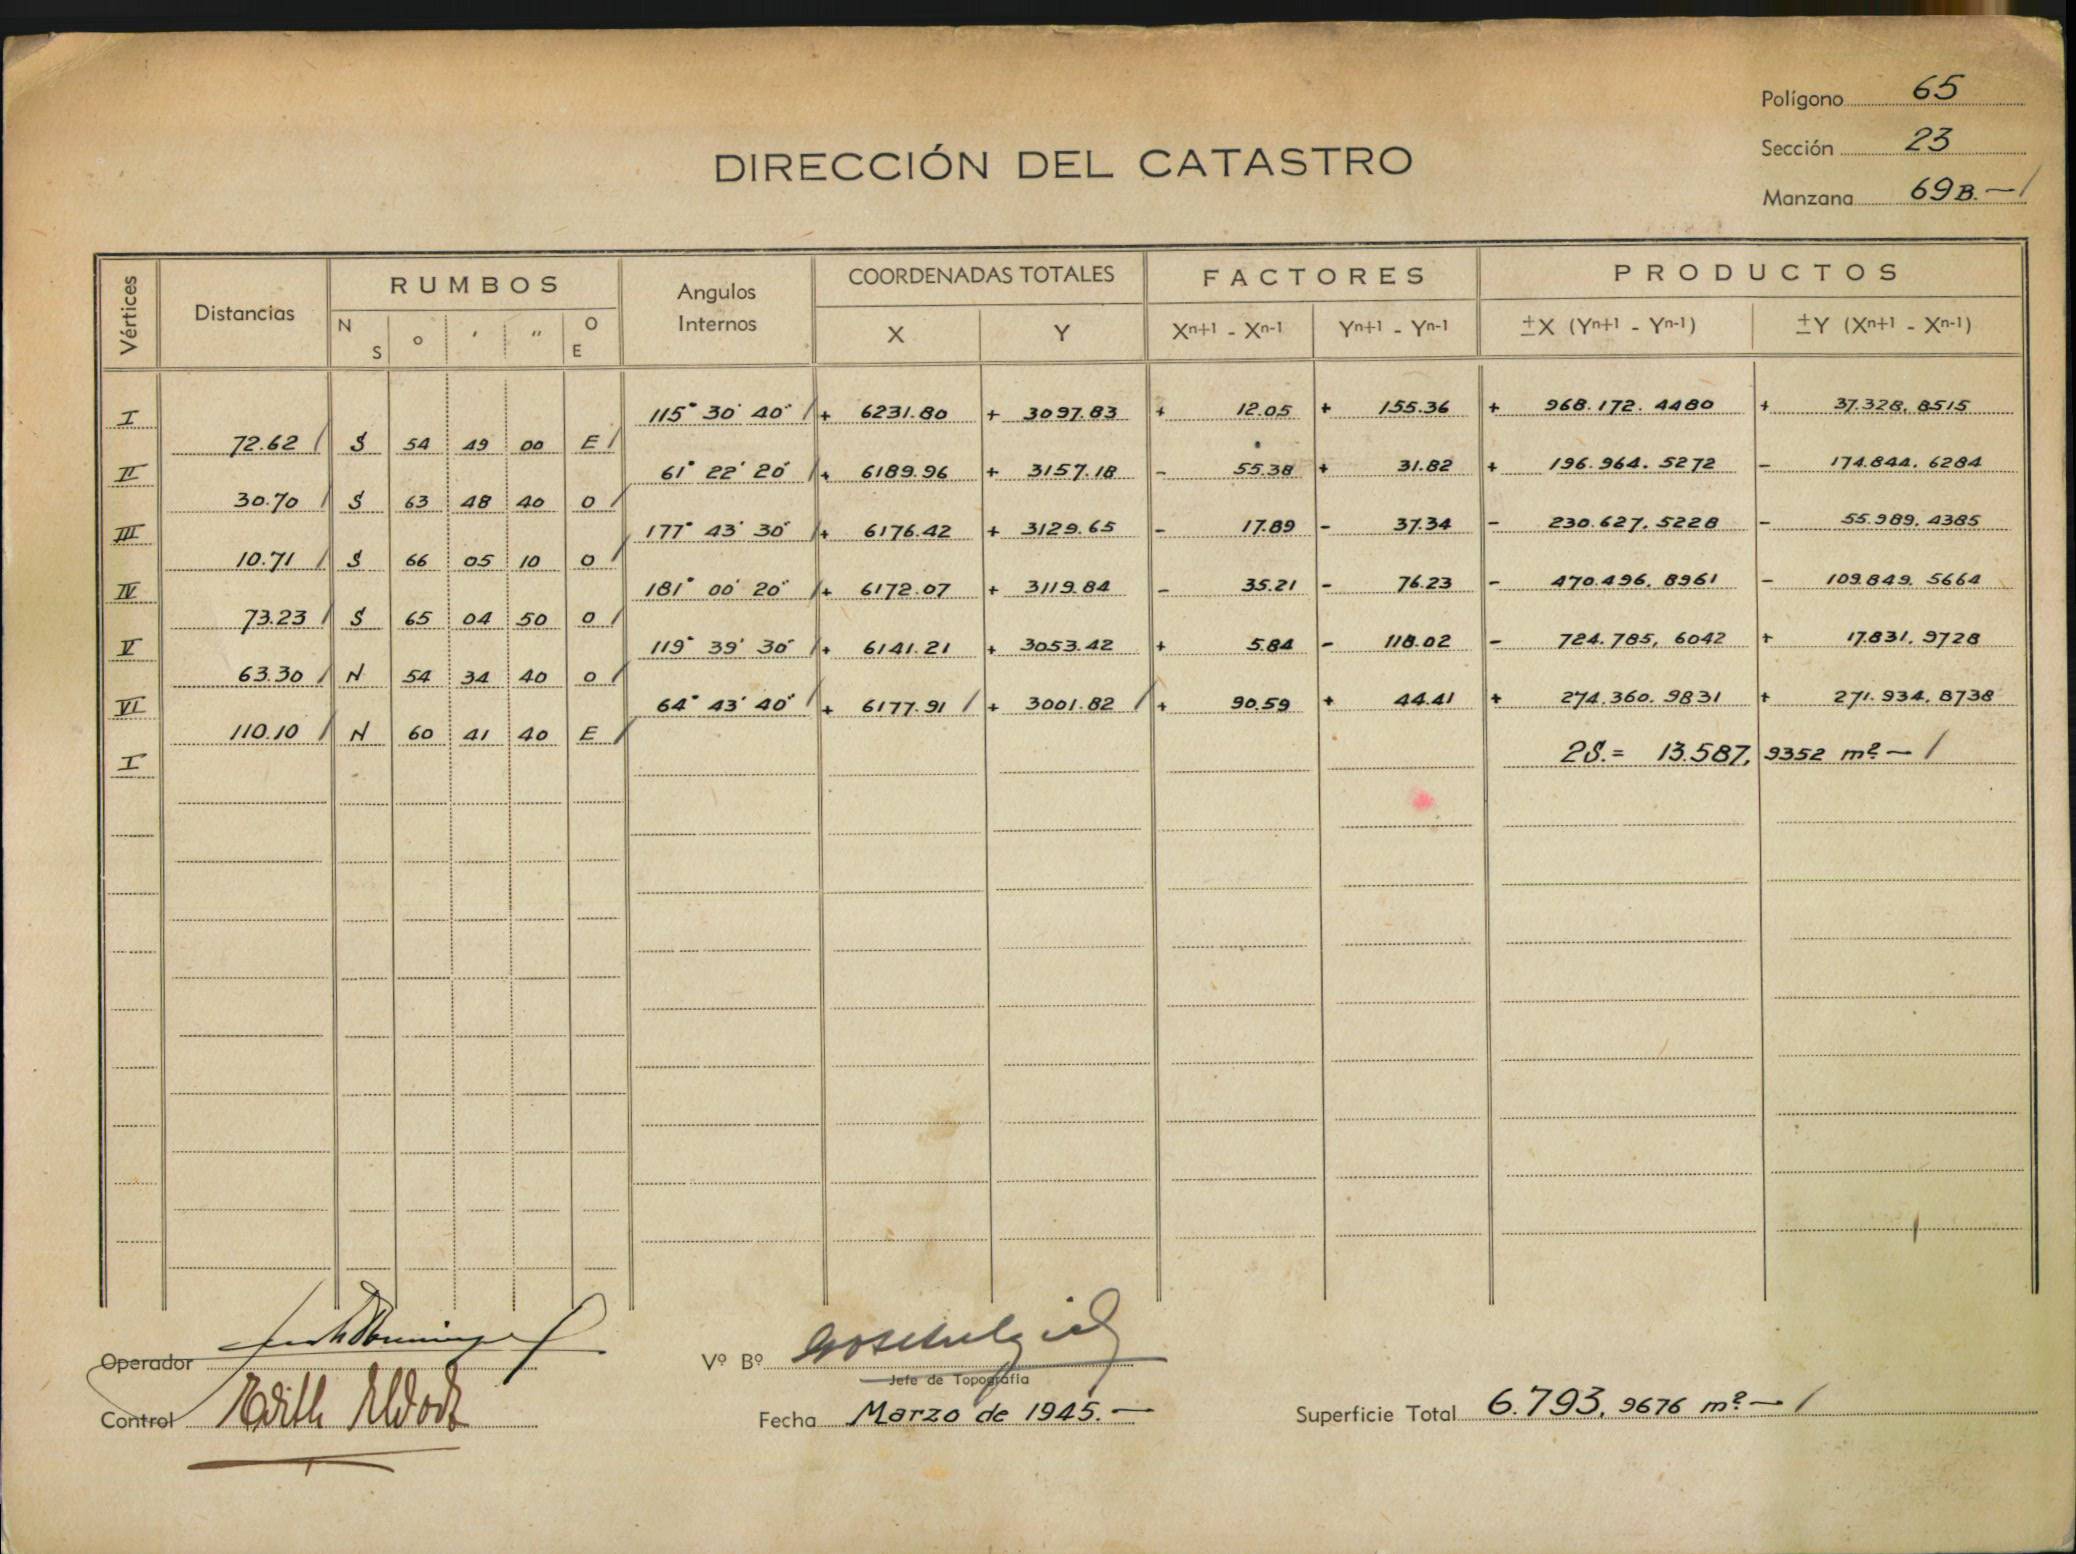 Polígono 65
Sección 23
Manzana 69B.— /
DIRECCIÓN DEL CATASTRO
Vértices Distancias RUMBOS Angulos Internos COORDENADAS TOTALES FACTORES PRODUCTOS
N S ° ' " O E X Y Xn+1 - Xn-1 Yn+1 - Yn-1 ±X (Yn+1 - Yn-1) ±Y (Xn+1 - Xn-1)
I 115° 30' 40" / + 6231.80 + 3097.83 + 12.05 + 155.36 + 968.172.4480 + 37.328,8515
72.62 / S 54 49 00 E /
II 61° 22' 20" + 6189.96 + 3157.18 - 55.38 + 31.82 + 196.964.5272 - 174.844,6284
30.70 / S 63 48 40 O /
III 177° 43' 30" / + 6176.42 + 3129.65 - 17.89 - 37.34 - 230.627,5228 - 55.989,4385
10.71 / S 66 05 10 O /
IV 181° 00' 20" / + 6172.07 + 3119.84 - 35.21 - 76.23 - 470.496,8961 - 109.849,5664
73.23 / S 65 04 50 O /
V 119° 39' 30" / + 6141.21 + 3053.42 + 5.84 - 118.02 - 724.785,6042 + 17.831,9728
63.30 / N 54 34 40 O /
VI 64° 43' 40" / + 6177.91 / + 3001.82 / + 90.59 + 44.41 + 274.360.9831 + 271.934,8738
110.10 / N 60 41 40 E /
I 2S.= 13.587,9352 m²— /
Operador
Vº Bº
Jefe de Topografía
Control
Fecha Marzo de 1945.—
Superficie Total 6.793,9676 m²— /